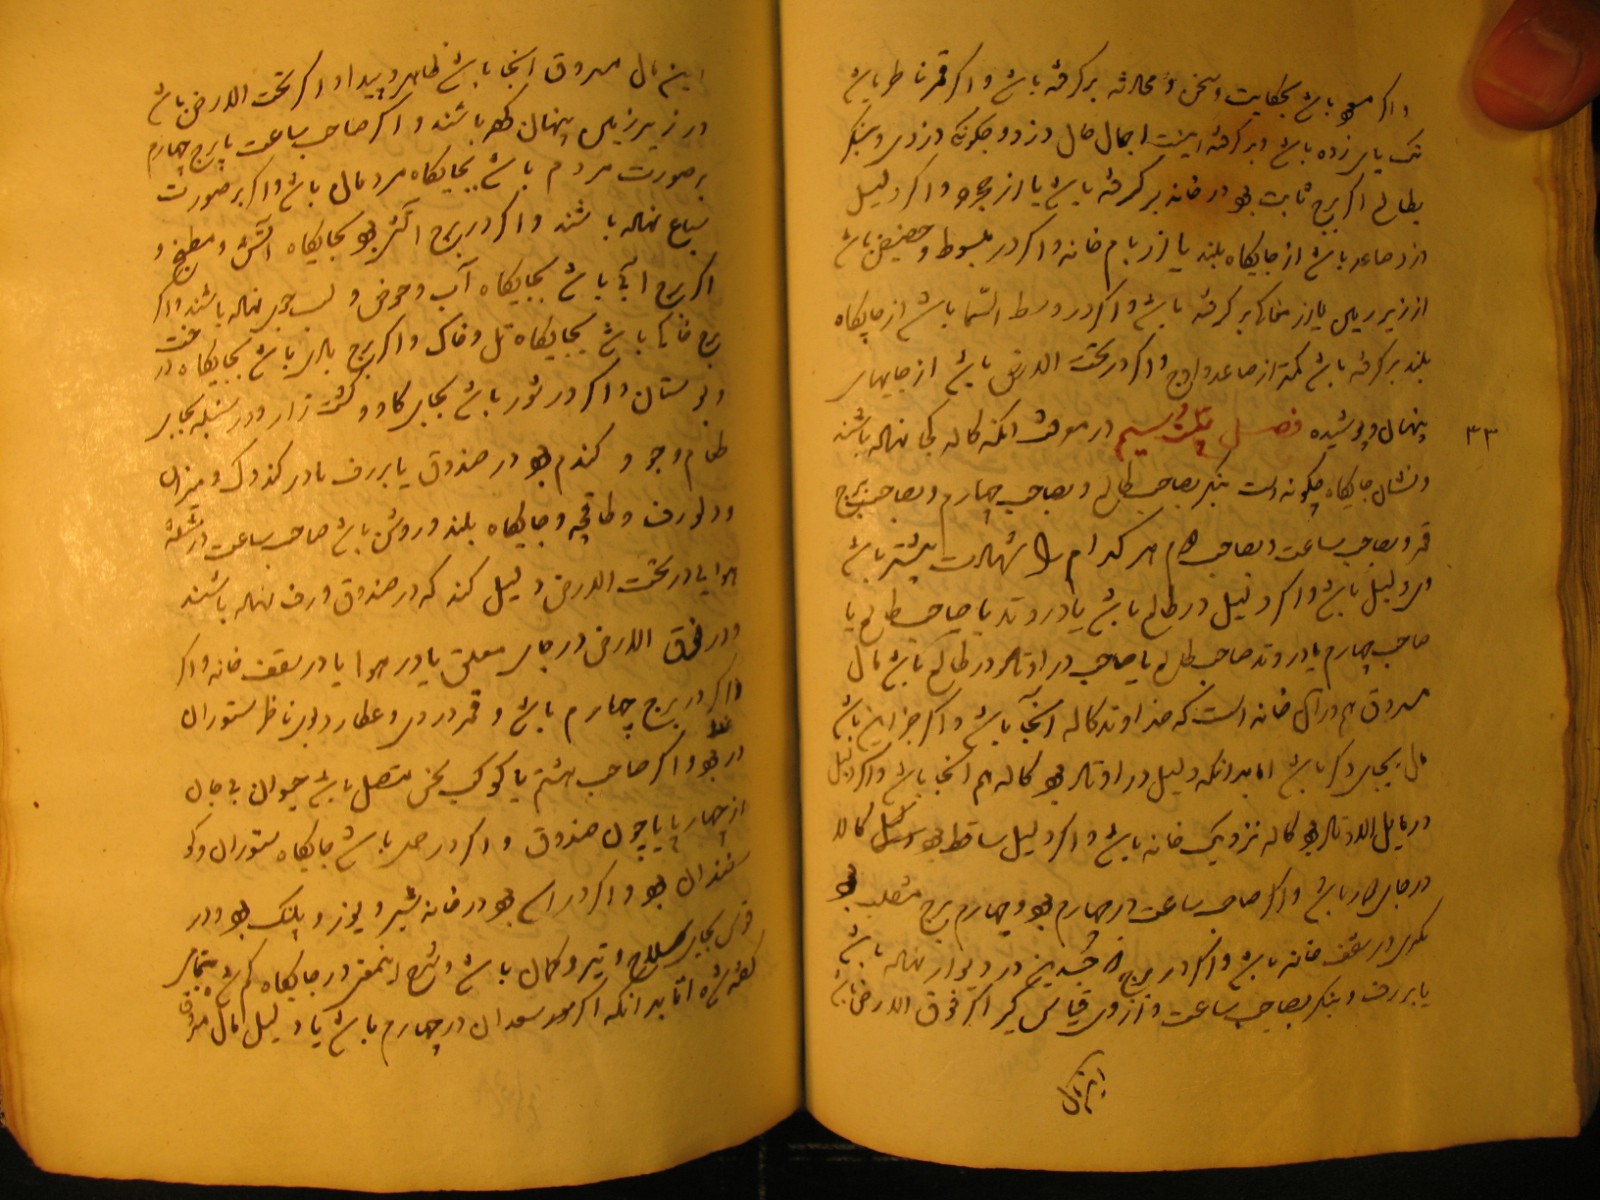 و اکر باشد بحکایت و سخن و محادثه بر کرفته باشد و اکر قمر ناظر باشد
باشد و بر کرفته اینست اجمال حال دزد و چکونکی دزدی و بنکر
بطالع اکر برج ثابت بود در خانه بر کرفته باشد یا از حجره و اکر دلیل
دزد صاعد باشد از جایکاه بلند یا از بام خانه و اکر در هبوط و حضیض باشد
از زیر زمین یا از مغاک بر کرفته باشد و اکر در وسط السما باشد از جایکاه
بلند بر کرفته باشد کمتر از صاعد و اوج و اکر در تحت الارض باشد از جایهای
پنهان و پوشیده فصل در معرفت آنکه کاله کجا نهاده باشند
۳۳
و نشان جایکاه چکونه است بنکر بصاحب طالع و بصاحب چهارم و بصاحب برج
قمر و بصاحب ساعت و بصاحب هر کدام را شهادت بیشتر باشد
وی دلیل باشد و اکر دلیل در طالع باشد یا در وتد یا صاحب طالع یا
صاحب چهارم یا در وتد صاحب طالع یا صاحب در اوتاد در طالع باشد مال
مسروق هم در آن خانه است که خداوند کاله آنجا باشد و اکر جز این باشد
مال بجای دکر باشد اما بدانکه دلیل در اوتاد بود کاله هم آنجا باشد و اکر دلیل
در مایل الاوتاد بود کاله نزدیک خانه باشد و اکر دلیل ساقط بود کالا
در جای باشد و اکر صاحب ساعت در چهارم بود و چهارم برج منقلب بود
در سقف خانه باشد و اکر در برج در دیوار نهاده باشد
یا بر رف و بنکر بصاحب ساعت و از وی قیاس کیر اکر فوق الارض باشد
این مال
این مال مسروق آنجا باشد ظاهر و پیدا و اکر تحت الارض باشد
در زیر زمین پنهان کرده باشند و اکر صاحب ساعت یا برج چهارم
بر صورت مردم باشد بجایکاه مردمان باشد و اکر بر صورت
سباع نهاده باشند و اکر در برج آتشی بود بجایکاه آتش و مطبخ و
اکر برج آبی باشد بجایکاه آب و حوض و لب جوی نهاده باشند و اکر
برج خاکی باشد بجایکاه تل و خاک و اکر برج بادی باشد بجایکاه درخت
و بوستان و اکر در ثور باشد بجای کاو و کشت زار و در سنبله بجای
طعام و جو و کندم بود در صندوق یا بر رف یا در کندوک و میزان
و دلو رف و طاقچه و جایکاه بلند و روشن باشد صاحب ساعت در مثلثه
هوا یا در تحت الارض دلیل کند که در صندوق و رف نهاده باشند
و در فوق الارض در جای معلق یا در هوا یا در سقف خانه و اکر
و اکر در برج چهارم باشد و قمر در وی و عطارد بوی ناظر ستوران
در بود و اکر صاحب هشتم با کوکب نحس متصل باشد حیوان بی جان
از چهار پا یا چون صندوق و اکر در حمل باشد جایکاه ستوران و کو
سفندان بود و اکر در اسد بود در خانه شیر و یوز و پلنک بود و در
قوس بجای سلاح و تیر و کمان باشد و شرح اینمعنی در جایکاه کم شده بتمامی
کفته شد اما بدانکه اکر سعدان در چهارم باشد یا دلیل مال مسروق